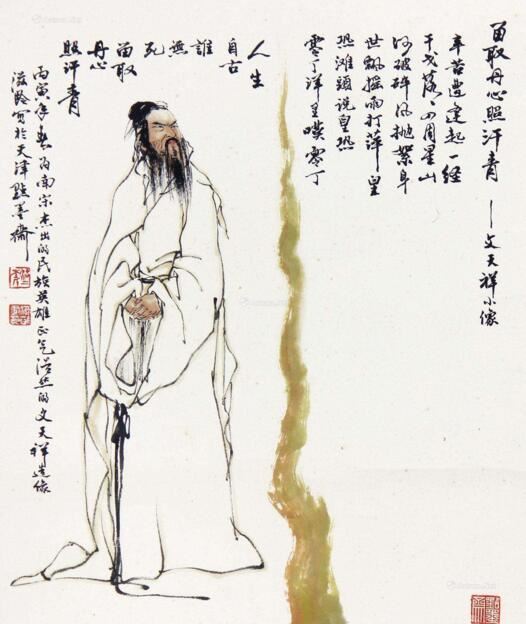 留取丹心照汗青——文天祥小像
辛苦遭逢起一经
干戈落々四周星山
河破碎風抛絮身
世飄摇雨打萍皇
恐滩頭説皇恐
零丁洋里嘆零丁
人生
自古
誰
無
死
留取
丹心
照汗青
丙寅年春为南宋杰出的民族英雄正气浩然的文天祥造像
滋龄写於天津點墨斋